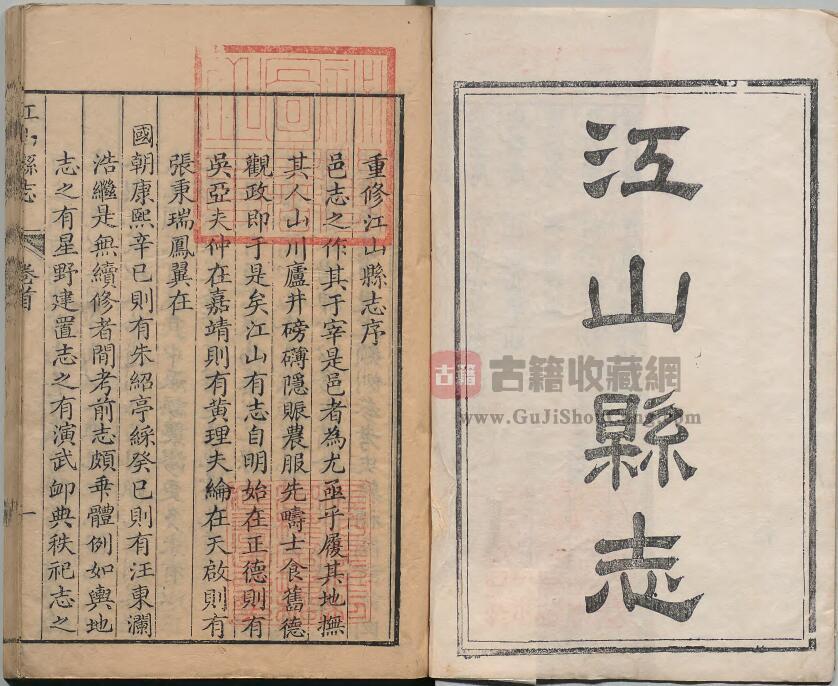 江山縣志
重修江山縣志序
邑志之作其于宰是邑者為尤亟乎履其地撫
其人山川廬井磅礴隱賑農服先疇士食舊德
觀政即于是矣江山有志自明始在正德則有
吳亞夫仲在嘉靖則有黃理夫綸在天啟則有
張秉瑞鳳翼在
國朝康熙辛巳則有朱紹亭綵癸巳則有汪東瀾
浩繼是無續修者閒考前志頗乖體例如輿地
志之有星野建置志之有演武卹典秩祀志之
江山縣志
卷首
一
古籍
古籍收藏網
www.GuJiShoCang.com